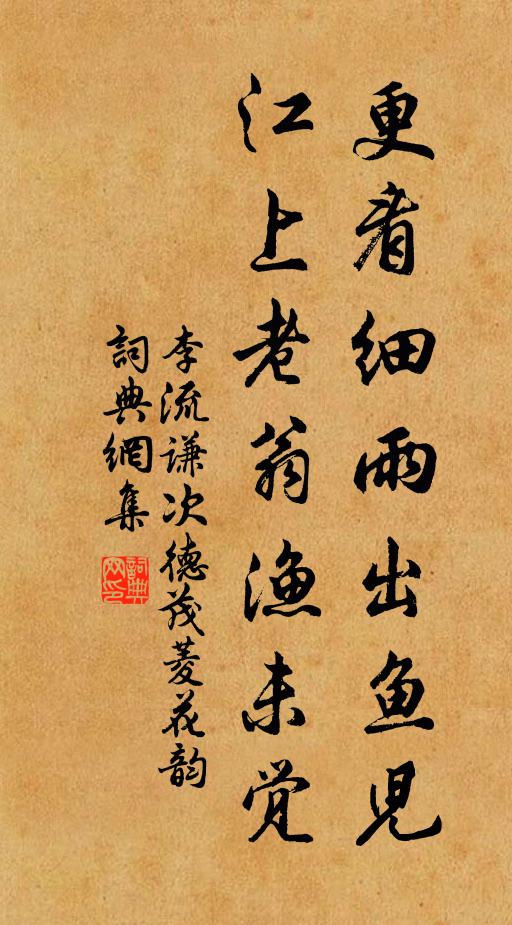 更看细雨出鱼児
江上老翁渔未觉
李流谦次德茂菱花韵
詞典網集
詞典
网印